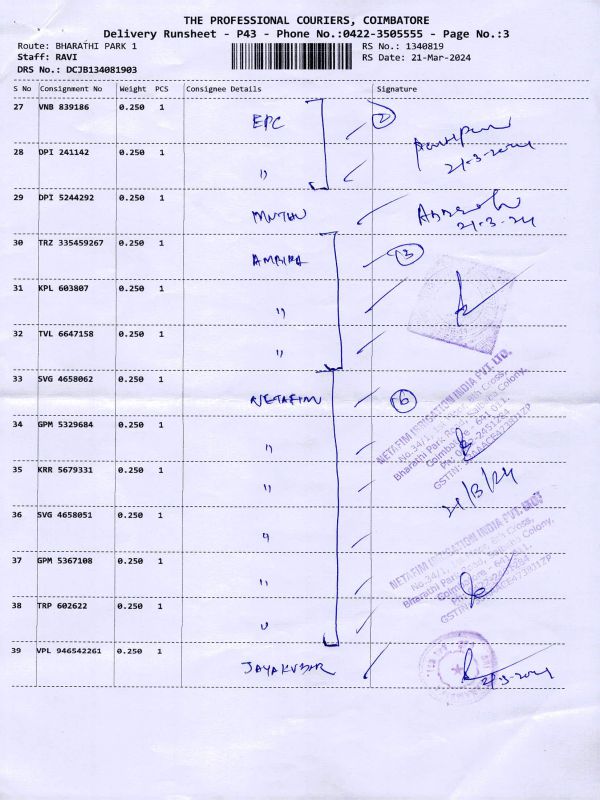 THE PROFESSIONAL COURIERS, COIMBATORE
Delivery Runsheet - P43 - Phone No.:0422-3505555 - Page No.:3
Route: BHARATHI PARK 1 RS No.: 1340819
Staff: RAVI RS Date: 21-Mar-2024
DRS No.: DCJB134081903
S No Consignment No Weight PCS Consignee Details Signature
27 VNB 839186 0.250 1 EPC 2
28 DPI 241142 0.250 1 "
21-3-2024
29 DPI 5244292 0.250 1
21-3-24
30 TRZ 335459267 0.250 1 AMBIKA 3
31 KPL 603807 0.250 1 "
32 TVL 6647158 0.250 1 "
33 SVG 4658062 0.250 1 NETAFIM 6
NETAFIM IRRIGATION INDIA PVT. LTD.
34 GPM 5329684 0.250 1 "
Bharathi Park Road,
Coimbatore - 641 011.
35 KRR 5679331 0.250 1 "
21/3/24
36 SVG 4658051 0.250 1 "
NETAFIM IRRIGATION INDIA PVT. LTD.
37 GPM 5367108 0.250 1 "
Bharathi Park Road,
Coimbatore - 641 011.
38 TRP 602622 0.250 1 "
39 VPL 946542261 0.250 1 JAYAKUMAR
21-3-2024